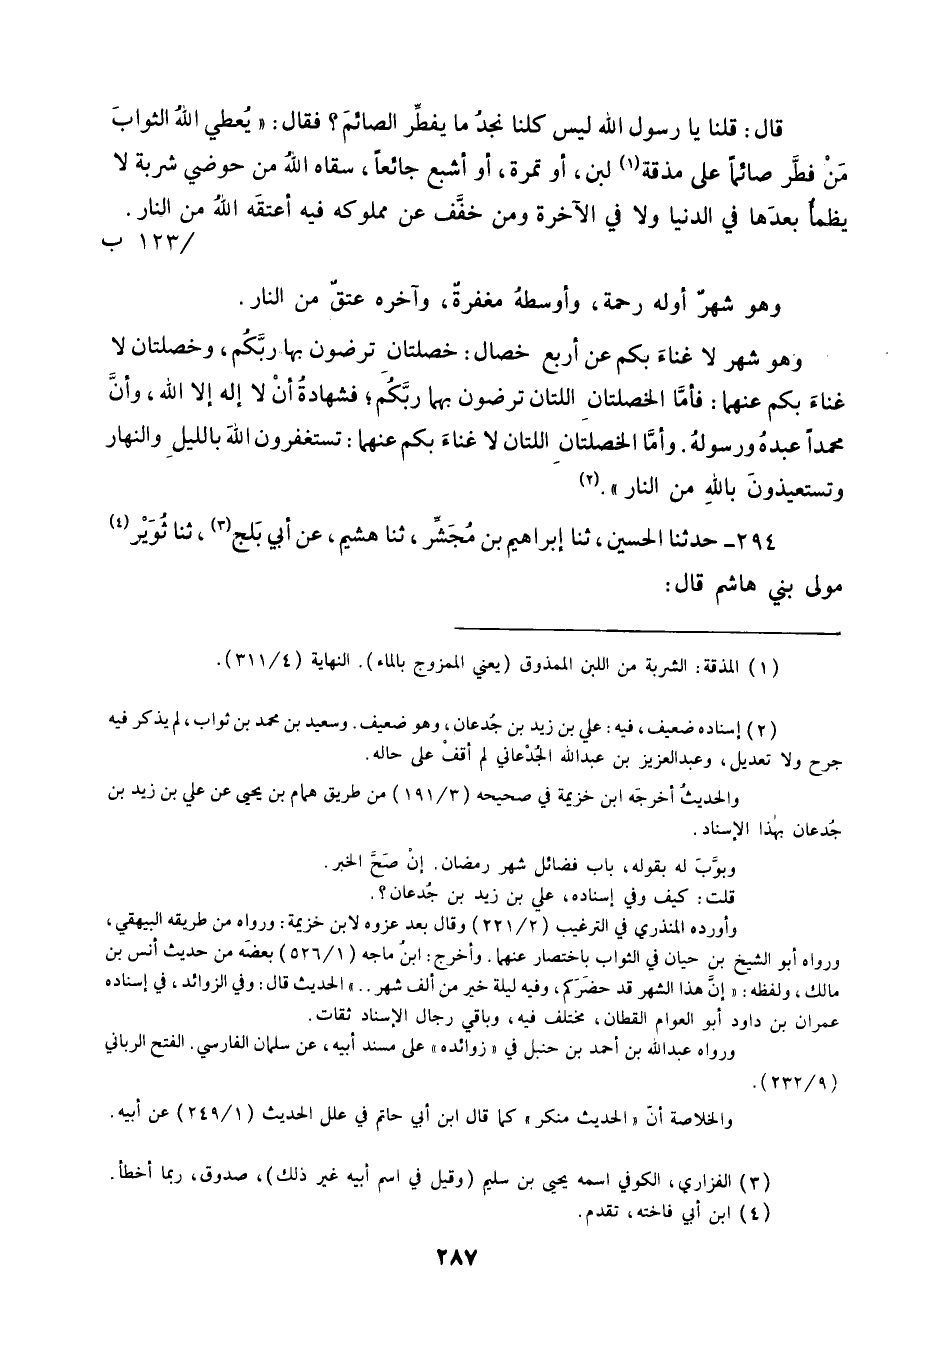 قال : قلنا يا رسول الله ليس كلنا نجدُ ما يفطِّر الصائمَ ؟ فقال : « يُعطي اللهُ الثوابَ
مَنْ فطَّر صائماً على مذقة(١) لبن ، أو تمرة ، أو أشبع جائعاً ، سقاه اللهُ من حوضي شربة لا
يظمأُ بعدَها في الدنيا ولا في الآخرة ومن خفَّف عن مملوكه فيه أعتقَه اللهُ من النار .
/١٢٣ ب
وهو شهرٌ أوله رحمة ، وأوسطهُ مغفرةٌ ، وآخره عتقٌ من النار .
وهو شهر لا غناءَ بكم عن أربع خصال : خصلتانِ ترضون بها ربَّكُم ، وخصلتان لا
غناءَ بكم عنهما : فأمَّا الخصلتانِ اللتان ترضون بهما ربَّكُم ؛ فشهادةُ أنْ لا إله إلا الله ، وأنَّ
محمداً عبدهُ ورسولهُ . وأمَّا الخصلتانِ اللتان لا غناءَ بكم عنهما : تستغفرون اللهَ بالليلِ والنهار
وتستعيذونَ باللهِ من النار » .(٢)
٢٩٤ـ حدثنا الحسين ، ثنا إبراهيم بن مُجَشِّر ، ثنا هشيم ، عن أبي بَلج(٣) ، ثنا ثُوَيْر(٤)
مولى بني هاشم قال :
(١) المذقة : الشربة من اللبن الممذوق (يعني الممزوج بالماء) . النهاية (٣١١/٤) .
(٢) إسناده ضعيف ، فيه : علي بن زيد بن جُدعان ، وهو ضعيف . وسعيد بن محمد بن ثواب ، لم يذكر فيه
جرح ولا تعديل ، وعبدالعزيز بن عبدالله الجُدْعاني لم أقفْ على حاله .
والحديثُ أخرجَه ابن خزيمة في صحيحه (١٩١/٣) من طريق همام بن يحيى عن علي بن زيد بن
جُدعان بهٰذا الإسناد .
وبوَّبَ له بقوله ، باب فضائل شهر رمضان . إنْ صَحَّ الخبر .
قلت : كيف وفي إسناده ، علي بن زيد بن جُدعان ؟ .
وأورده المنذري في الترغيب (٢٢١/٢) وقال بعد عزوه لابن خزيمة : ورواه من طريقه البيهقي ،
ورواه أبو الشيخ بن حيان في الثواب باختصار عنهما . وأخرج : ابنُ ماجه (٥٢٦/١) بعضَه من حديث أنس بن
مالك ، ولفظه : « إنَّ هذا الشهر قد حضَرَكم ، وفيه ليلة خير من ألف شهر .. » الحديث قال : وفي الزوائد ، في إسناده
عمران بن داود أبو العوام القطان ، مختلف فيه ، وباقي رجال الإسناد ثقات .
ورواه عبدالله بن أحمد بن حنبل في « زوائده » على مسند أبيه ، عن سلمان الفارسي . الفتح الرباني
(٢٣٢/٩) .
والخلاصة أنّ « الحديث منكر » كما قال ابن أبي حاتم في علل الحديث (٢٤٩/١) عن أبيه .
(٣) الفزاري ، الكوفي اسمه يحيى بن سليم (وقيل في اسم أبيه غير ذلك) ، صدوق ، ربما أخطأ .
(٤) ابن أبي فاخته ، تقدم .
٢٨٧